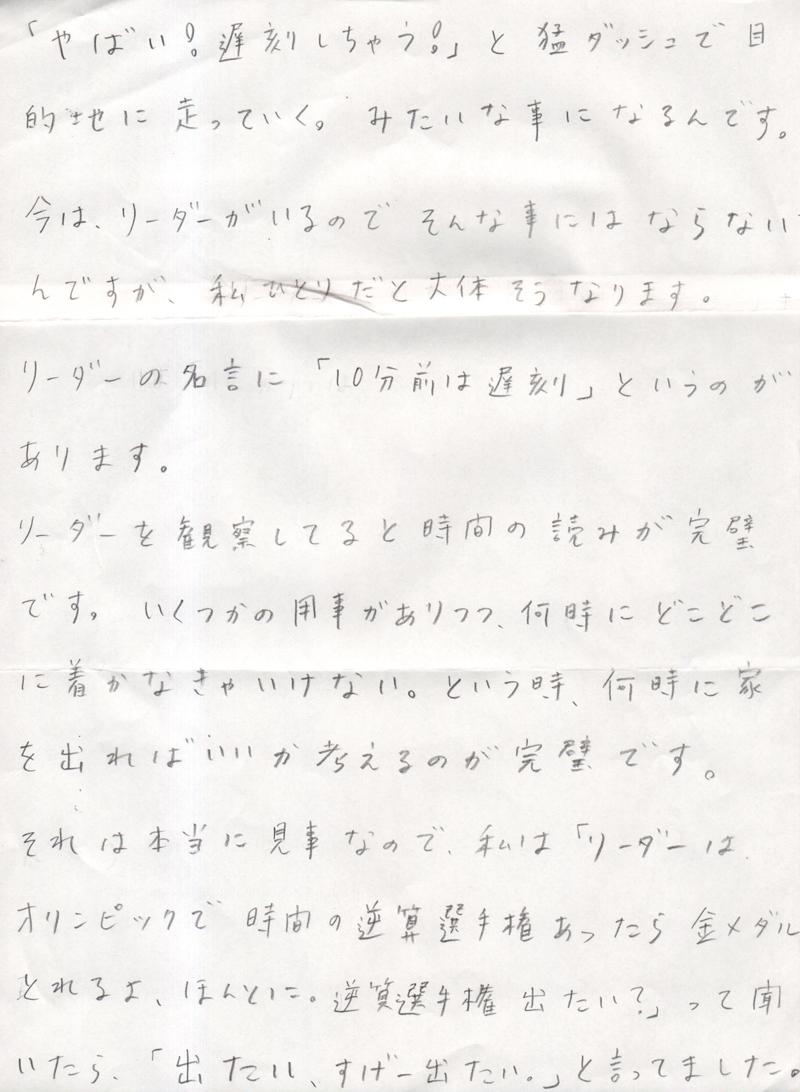 「やばい！遅刻しちゃう！」と猛ダッシュで目
的地に走っていく。みたいな事になるんです。
今は、リーダーがいるのでそんな事にはならない
んですが、私ひとりだと大体そうなります。
リーダーの名言に「10分前は遅刻」というのが
あります。
リーダーを観察してると時間の読みが完璧
です。いくつかの用事がありつつ、何時にどこどこ
に着かなきゃいけない。という時、何時に家
を出ればいいか考えるのが完璧です。
それは本当に見事なので、私は「リーダーは
オリンピックで時間の逆算選手権あったら金メダル
とれるよ、ほんとに。逆算選手権出たい？」って聞
いたら、「出たい、すげー出たい。」と言ってました。